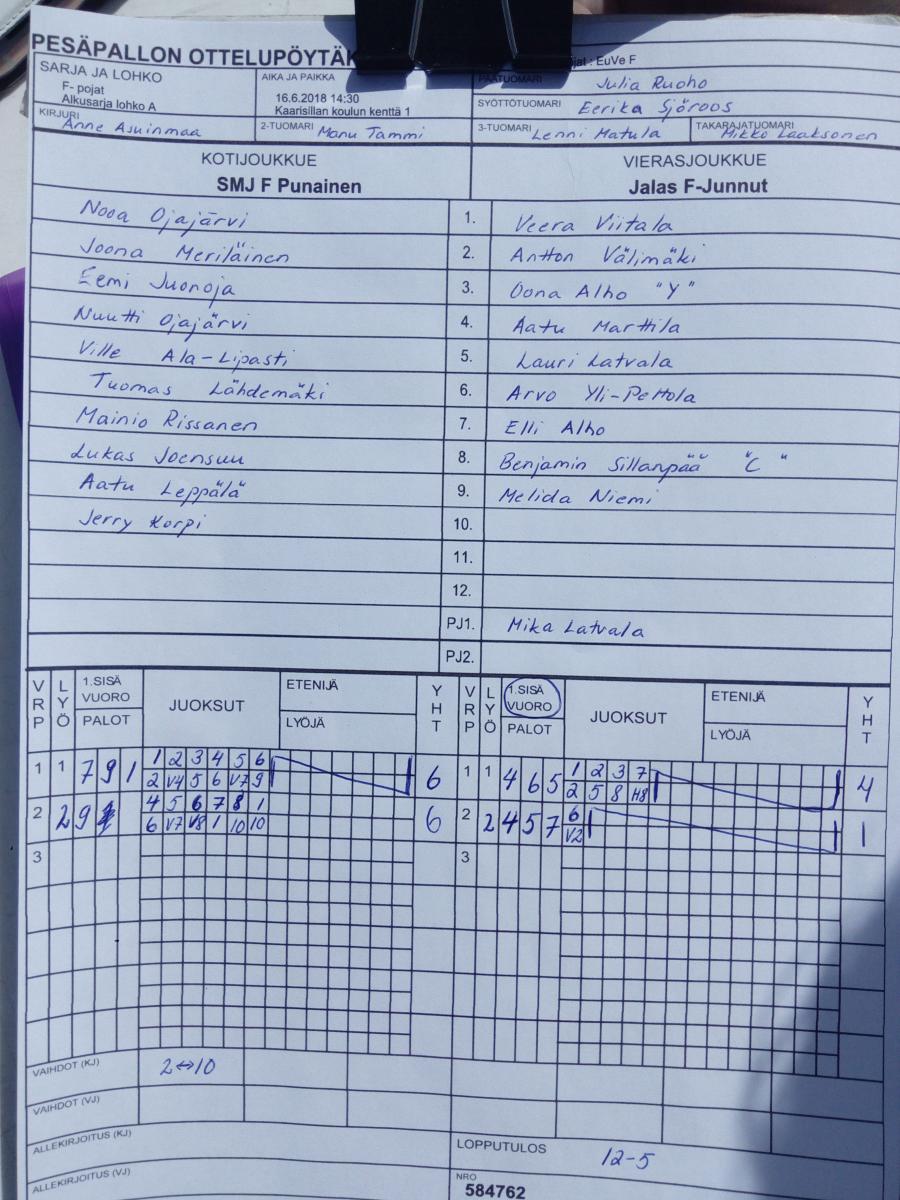 PESÄPALLON OTTELUPÖYTÄK
: EuVe F
SARJA JA LOHKO
F- pojat
Alkusarja lohko A
AIKA JA PAIKKA
16.6.2018 14:30
Kaarisillan koulun kenttä 1
PÄÄTUOMARI Julia Ruoho
SYÖTTÖTUOMARI Eerika Sjöroos
KIRJURI Anne Asuinmaa
2-TUOMARI Manu Tammi
3-TUOMARI Lenni Matula
TAKARAJATUOMARI Mikko Laaksonen
KOTIJOUKKUE VIERASJOUKKUE
SMJ F Punainen Jalas F-Junnut
Nooa Ojajärvi 1. Veera Viitala
Joona Meriläinen 2. Antton Välimäki
Eemi Juonoja 3. Oona Alho "Y"
Nuutti Ojajärvi 4. Aatu Marttila
Ville Ala-Lipasti 5. Lauri Latvala
Tuomas Lähdemäki 6. Arvo Yli-Pettola
Mainio Rissanen 7. Elli Alho
Lukas Joensuu 8. Benjamin Sillanpää "C"
Aatu Leppälä 9. Melida Niemi
Jerry Korpi 10.
11.
12.
PJ1. Mika Latvala
PJ2.
VRP LYÖ 1.SISÄ VUORO PALOT JUOKSUT ETENIJÄ LYÖJÄ YHT VRP LYÖ 1.SISÄ VUORO PALOT JUOKSUT ETENIJÄ LYÖJÄ YHT
1 1 7 9 1 1 2 3 4 5 6 6 1 1 4 6 5 1 2 3 7 4
2 V4 5 6 V7 9 2 5 8 H8
2 2 9 4 5 6 7 8 1 6 2 2 4 5 7 6 1
6 V7 V8 1 10 10 V2
3 3
VAIHDOT (KJ) 2↔10
VAIHDOT (VJ)
ALLEKIRJOITUS (KJ) LOPPUTULOS 12-5
ALLEKIRJOITUS (VJ) NRO
584762